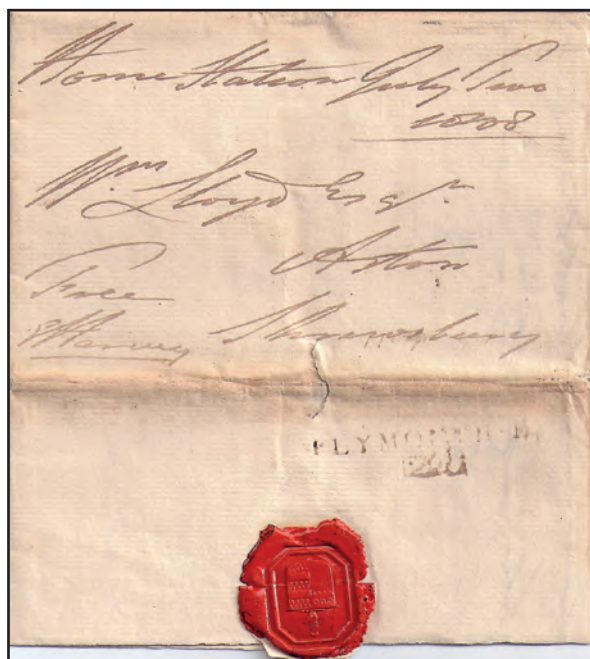 Home Station July Two
1808
Wm Lloyd Esqr.
Aston
Free
Harvey Shrewsbury
PLYMOUTH